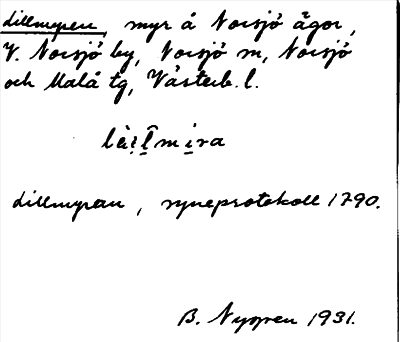 Lillmyren, myr å Norsjö ägor,
V. Norsjö by, Norsjö sn, Norsjö
och Malå tg, Västerb. l.
Lillmyran, syneprotokoll 1790.
B. Nygren 1931.